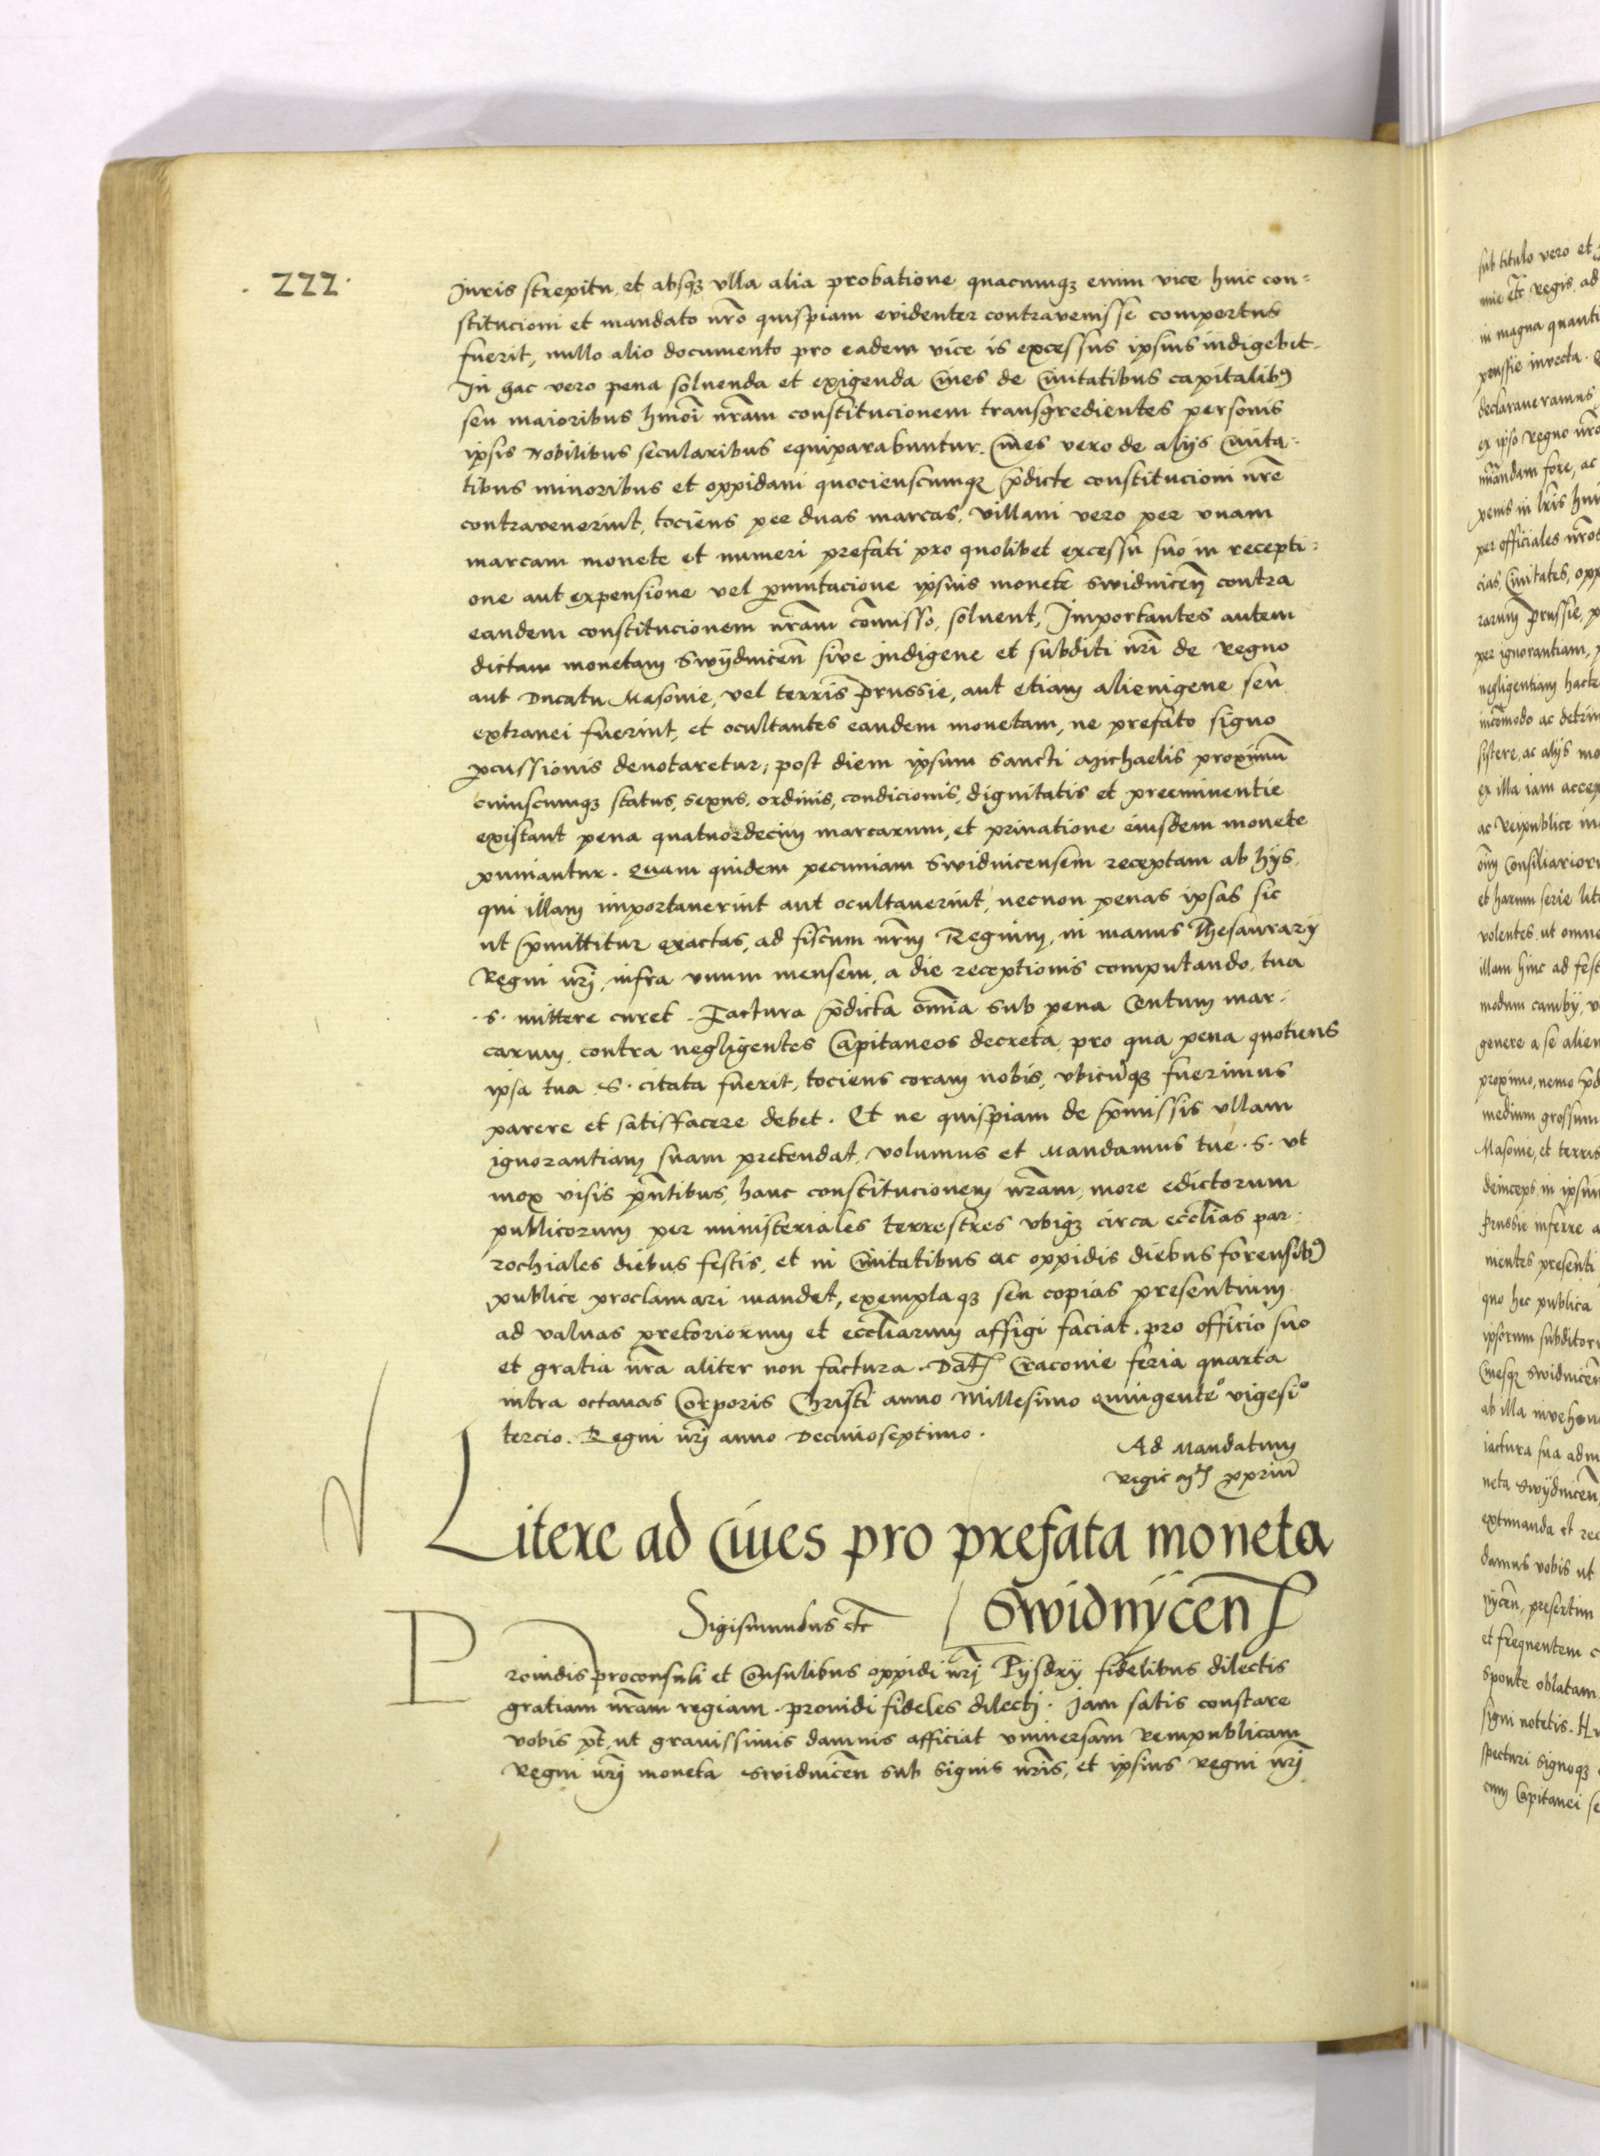 . 222 .
Juris strepitu, et absq3 vlla alia probatione, quacumq3 enim vice huic con=
stitucioni et mandato nr̄o quispiam evidenter contravenisse compertus
fuerit, nullo alio documento pro eadem vice is excessus ipsius indigebit.
In hac vero pena soluenda et exigenda Ciues de Ciuitatibus capitalib9
seu maioribus hmōi nr̄am constitucionem transgredientes personis
ipsis Nobilibus secularibus equiparabuntur. Ciues vero de alijs Ciuita=
tibus minoribus et oppidani quocienscumq3 p̄dicte constitucioni nr̄e
contravenerint, tociens per duas marcas, villani vero per vnam
marcam monete et numeri prefati pro quolibet excessu suo in recepti=
one aut expensione vel p̱mutacione ipsius monete Swidnicen̄ contra
eandem constitucionem nr̄am com̄isso, soluent, Importantes autem
dictam monetam Swÿdnicen̄ sive indigene et subditi nr̄i de Regno
aut Ducatu Masouie, vel terris Prussie, aut etiam alienigene seu
extranei fuerint, et ocultantes eandem monetam, ne prefato signo
p̱cussionis denotaretur, post diem ipsum Sancti Michaelis proximū
cuiuscumq3 status, sexus, ordinis, condicionis, dignitatis et preeminentie
existant pena quatuordecim marcarum, et priuatione eiusdem monete
puniantur. Quam quidem pecuniam Swidnicensem receptam ab hijs,
qui illam importauerint aut ocultauerint, necnon penas ipsas sic
ut p̄mittitur exactas, ad fiscum nr̄m Regium, in manus Thesaurarij
Regni nr̄j, infra vnum mensem, a die receptionis computando, tua
. S. mittere curet. Factura p̄dicta om̄ia sub pena Centum mar=
carum, contra negligentes Capitaneos decreta, pro qua pena quotiens
ipsa tua .S. citata fuerit, tociens coram nobis, vbicūq3 fuerimus
parere et satisfacere debet. Et ne quispiam de p̄missis vllam
ignorantiam suam pretendat, volumus et Mandamus tue .S. vt
mox visis pn̄tibus, hanc constitucionem nr̄am, more edictorum
publicorum per ministeriales terrestres vbiq3 circa eccl̄ias par=
rochiales diebus festis, et in Ciuitatibus ac oppidis diebus forensib9
publice proclamari mandet, exemplaq3 seu copias presentium
ad valuas pretoriorum et eccl̄iarum affigi faciat, pro officio suo
et gratia nr̄a aliter non factura. Dat̄ Cracouie feria quarta
intra octauas Corporis Christi anno Millesimo Quingenteº vigesiº
tercio. Regni nr̄j anno Decimoseptimo.
Ad Mandatum
Regie mt̄ pp̱riū
Litere ad Ciues pro prefata moneta
Swidnÿcen̄
Sigismundus etc
Prouidis proconsuli et Consulibus oppidi nr̄j Pÿsdrÿ fidelibus dilectis
gratiam nr̄am regiam. prouidi fideles dilectj. Jam satis constare
vobis pt̄, ut grauissimis damnis afficiat vniuersam Rempublicam
Regni nr̄j moneta Swidnicen̄ sub signis nr̄is, et ipsius regni nr̄j
sub titulo vero et
mie etc Regis, ad
in magna quanti
prussie invecta.
declaraueramus
ex ipso Regno nr̄o
fore, ac
penis in lr̄is hui
per officiales nr̄os
cias, Ciuitates, opp
rarum Prussie, p
per ignorantiam,
negligentiam hacte
incōmodo ac detrim
sistere, ac alijs mo
ex illa iam accep
ac Reipublice
om̄ Consiliarior
et harum serie lite
volentes, ut omne
illam hinc ad fest
modum cambij, v
genere a se alien
proximo, nemo p̄d
medium grossum
Masouie, et terris
deinceps, in ipsum
Prussie inferre a
nientes presenti
quo hec publica
ipsorum subditor
Ciuesq3 Swidnicen̄
ab illa invehen
iactura sua adm
neta Swÿdnicen̄
extimanda et rec
damus vobis ut
nÿcen̄, presertim
et frequentem c
sponte oblatam
signi notetis. H
specturi signoq3
cum Capitanei se